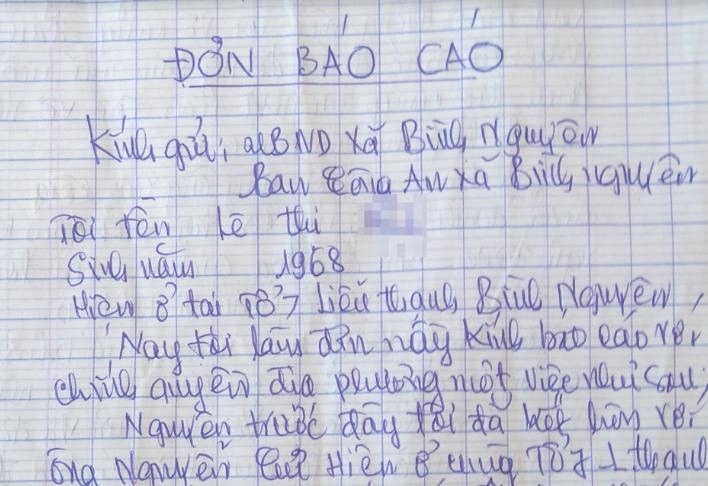 ĐƠN BÁO CÁO
Kính gửi; UBND xã Bình Nguyên
Ban Công An xã Bình nguyên
Tôi tên Lê thị
Sinh năm 1968
Hiện ở tại Tổ 7 Liễu thạnh Bình Nguyên,
Nay tôi làm đơn này kính báo cáo với
chính quyền địa phương một việc như sau;
Nguyên trước đây tôi đã kết hôn với
ông Nguyễn Hiện ở cùng Tổ 7 L thạnh